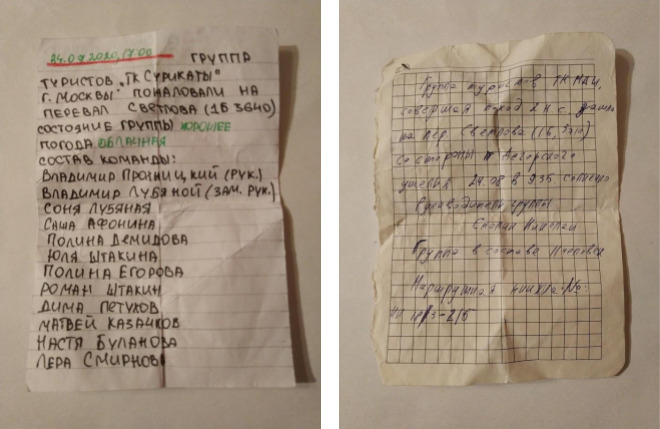 24.09.2020, 17:00 ГРУППА
ТУРИСТОВ „ТК СУРИКАТЫ"
Г. МОСКВЫ ПОЖАЛОВАЛИ НА
ПЕРЕВАЛ СВЕТЛОВА (1Б 3640)
СОСТОЯНИЕ ГРУППЫ ХОРОШЕЕ
ПОГОДА ОБЛАЧНАЯ
СОСТАВ КОМАНДЫ:
ВЛАДИМИР (РУК.)
ВЛАДИМИР ЛУБЯНОЙ (ЗАМ. РУК.)
СОНЯ ЛУБЯНАЯ
САША АФОНИНА
ПОЛИНА ДЕМИДОВА
ЮЛЯ ШТАКИНА
ПОЛИНА ЕГОРОВА
РОМАН ШТАКИН
ДИМА ПЕТУХОВ
МАТВЕЙ КАЗАЧКОВ
НАСТЯ БУЛАНОВА
ЛЕРА СМИРНОВА
Группа туристов ТК МАИ,
совершая поход 2 к.с.
на пер. Светлова (1Б,
Со стороны
ущелья 24.08 в 9
Руководитель группы
Группа в составе
Маршрутная книжка №: